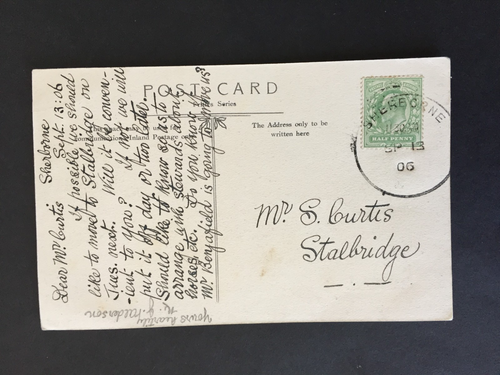 POST CARD
Series
The Address only to be
written here
HALF PENNY
SHERBORNE
SP 13
06
Mr. S. Curtis
Stalbridge
Sherborne
Sept. 13. 06
Dear Mr. Curtis
If possible we should
like to move to Stalbridge on
Tues. next. Will it be conven-
ient to you? If not we will
put it off a day or two later.
Should like to know so as to
arrange with
horses, etc. Do you know that
Mr. is going to move us
Yours heartily